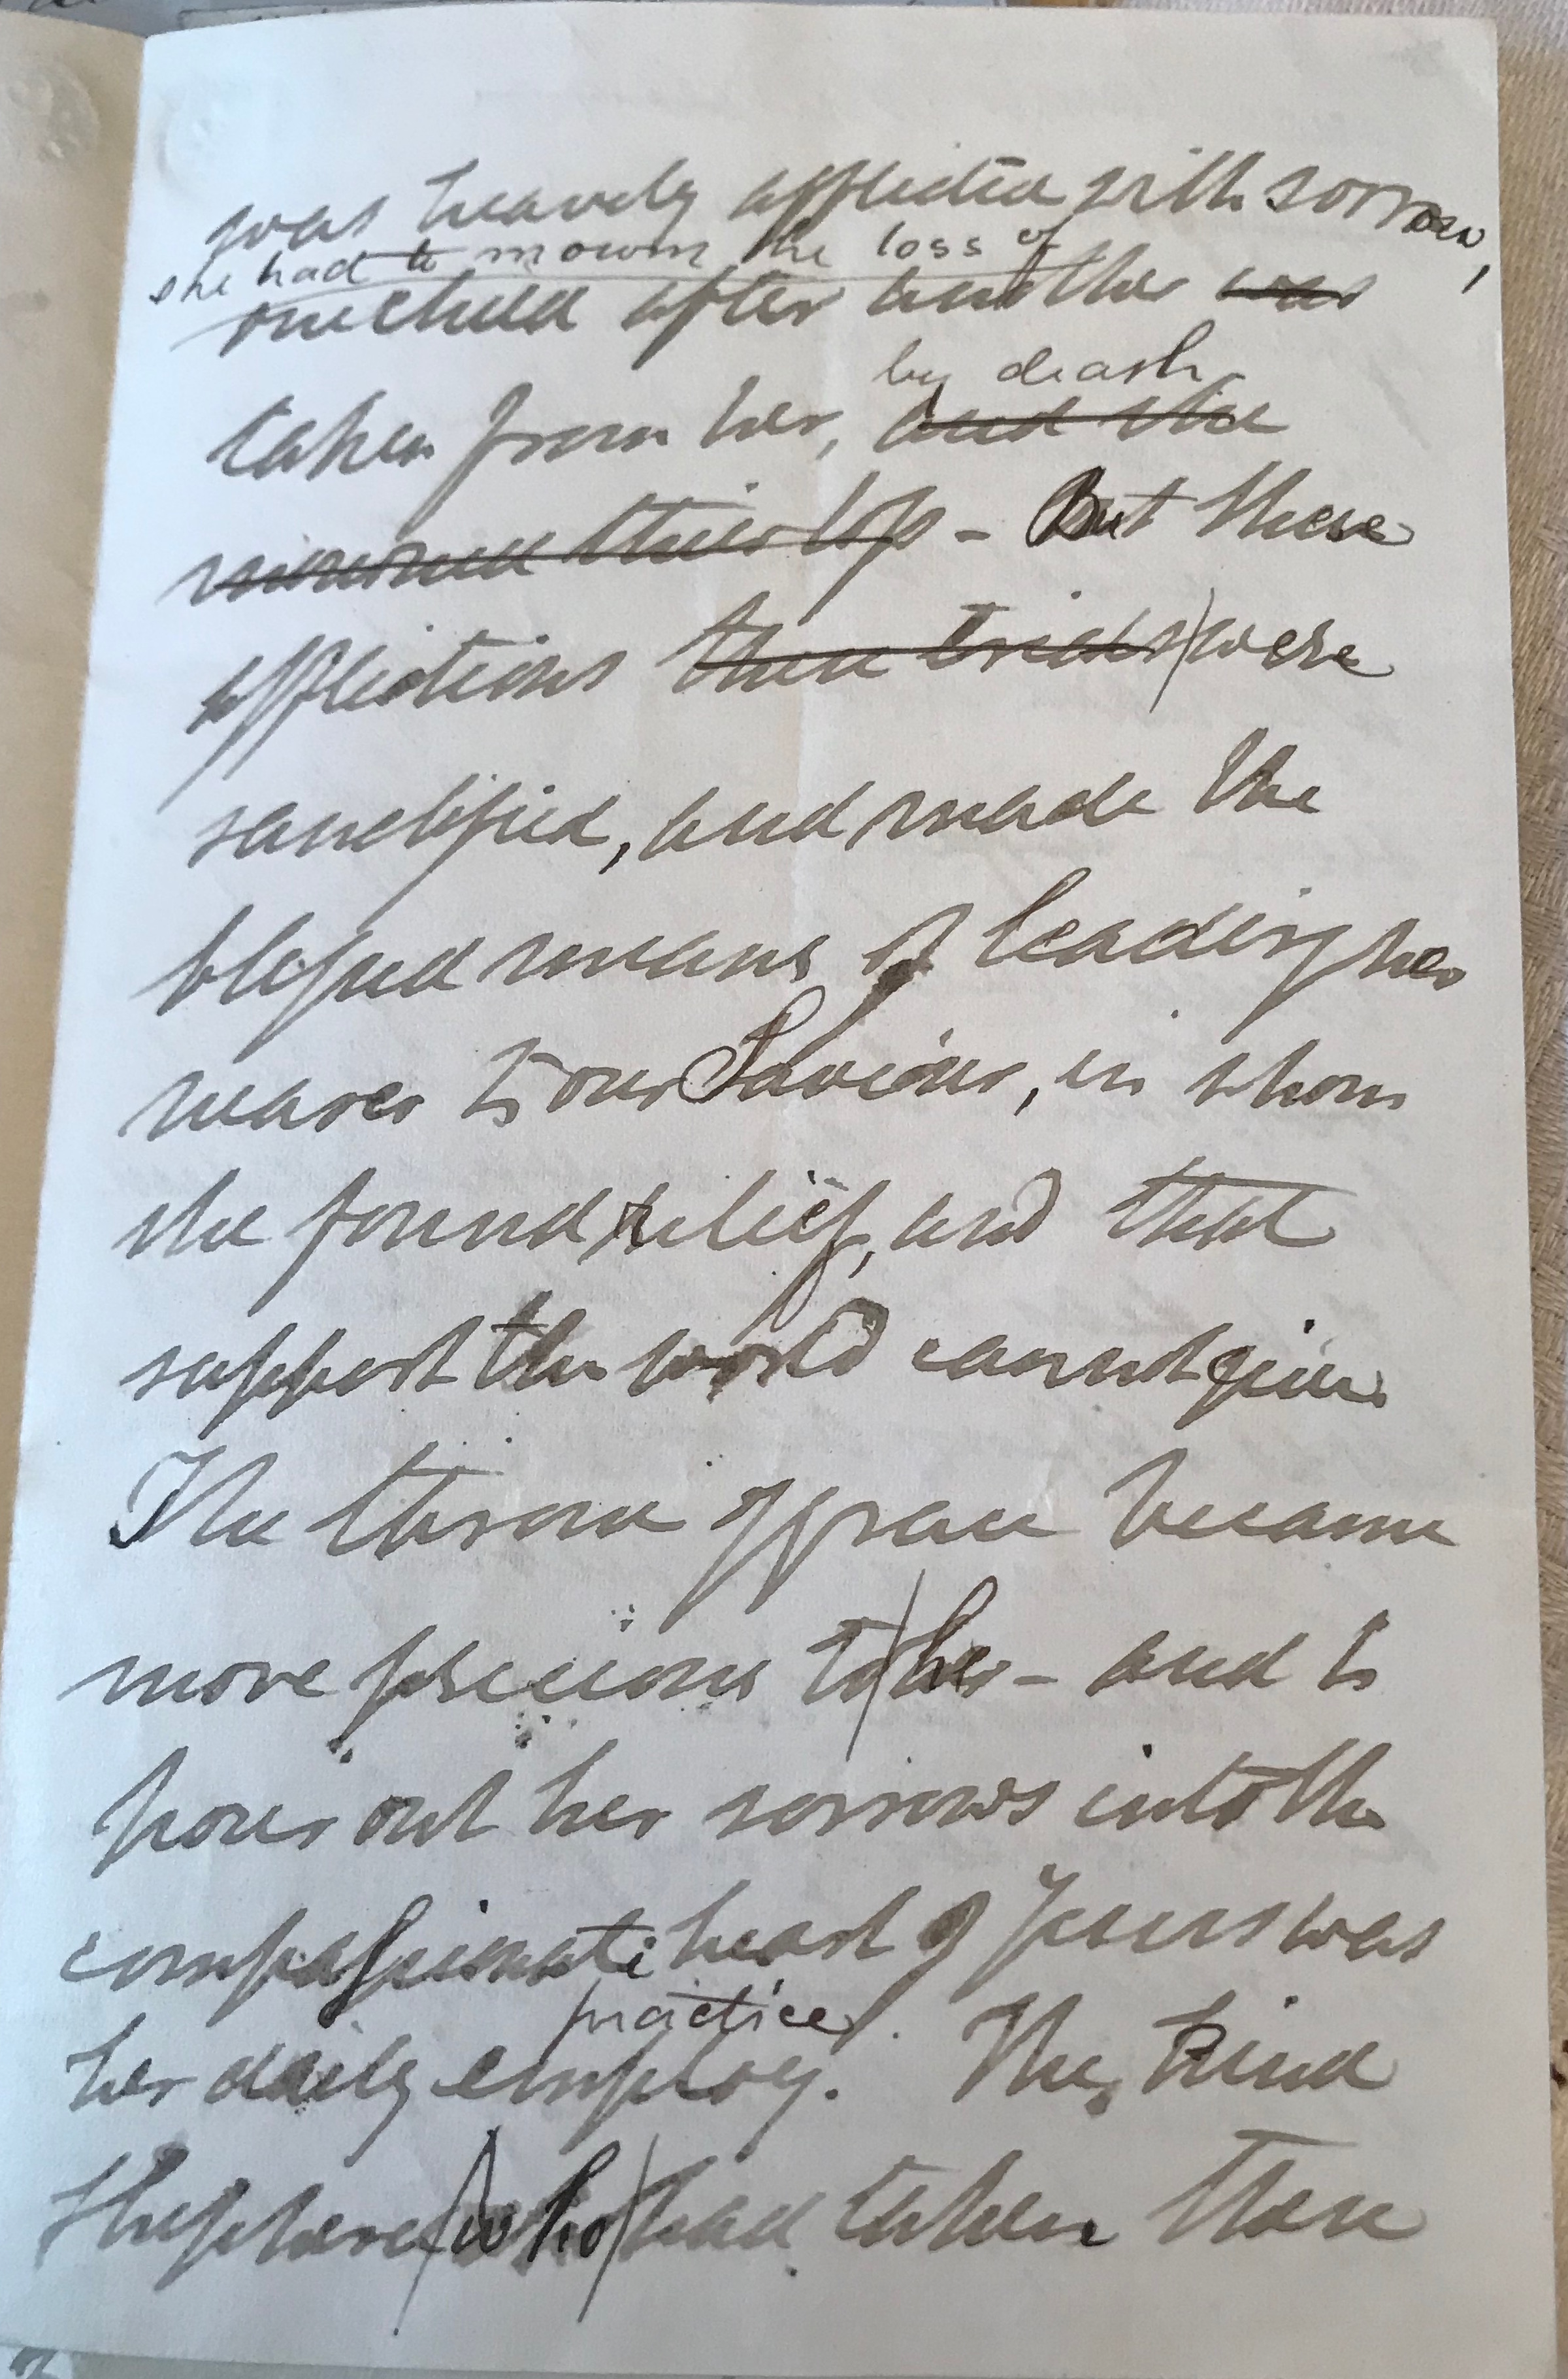 was heavily afflicted with sorrow,
she had to mourn the loss of
one child after another was
by death
taken from her, and she
mourned their loss - But these
afflictions these trials were
sanctified, and made the
blessed means of leading her
nearer to our Saviour, in whom
she found relief, and that
support the world cannot give.
The throne of grace became
more precious to her - and to
pour out her sorrows into the
compassionate heart of Jesus was
practice.
her daily employ. The kind
Shepherd who had taken these